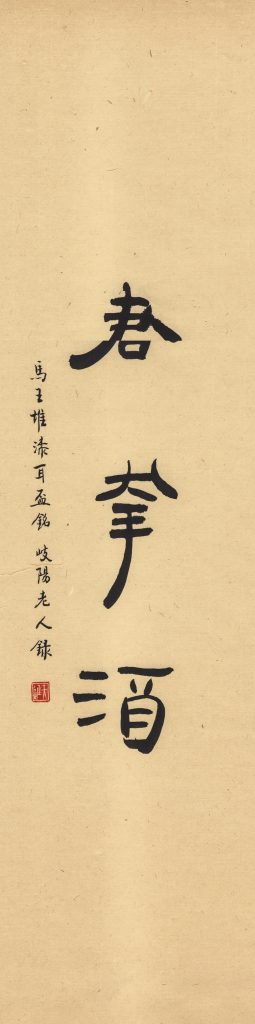 君幸酒
馬王堆漆耳盃銘 岐陽老人錄